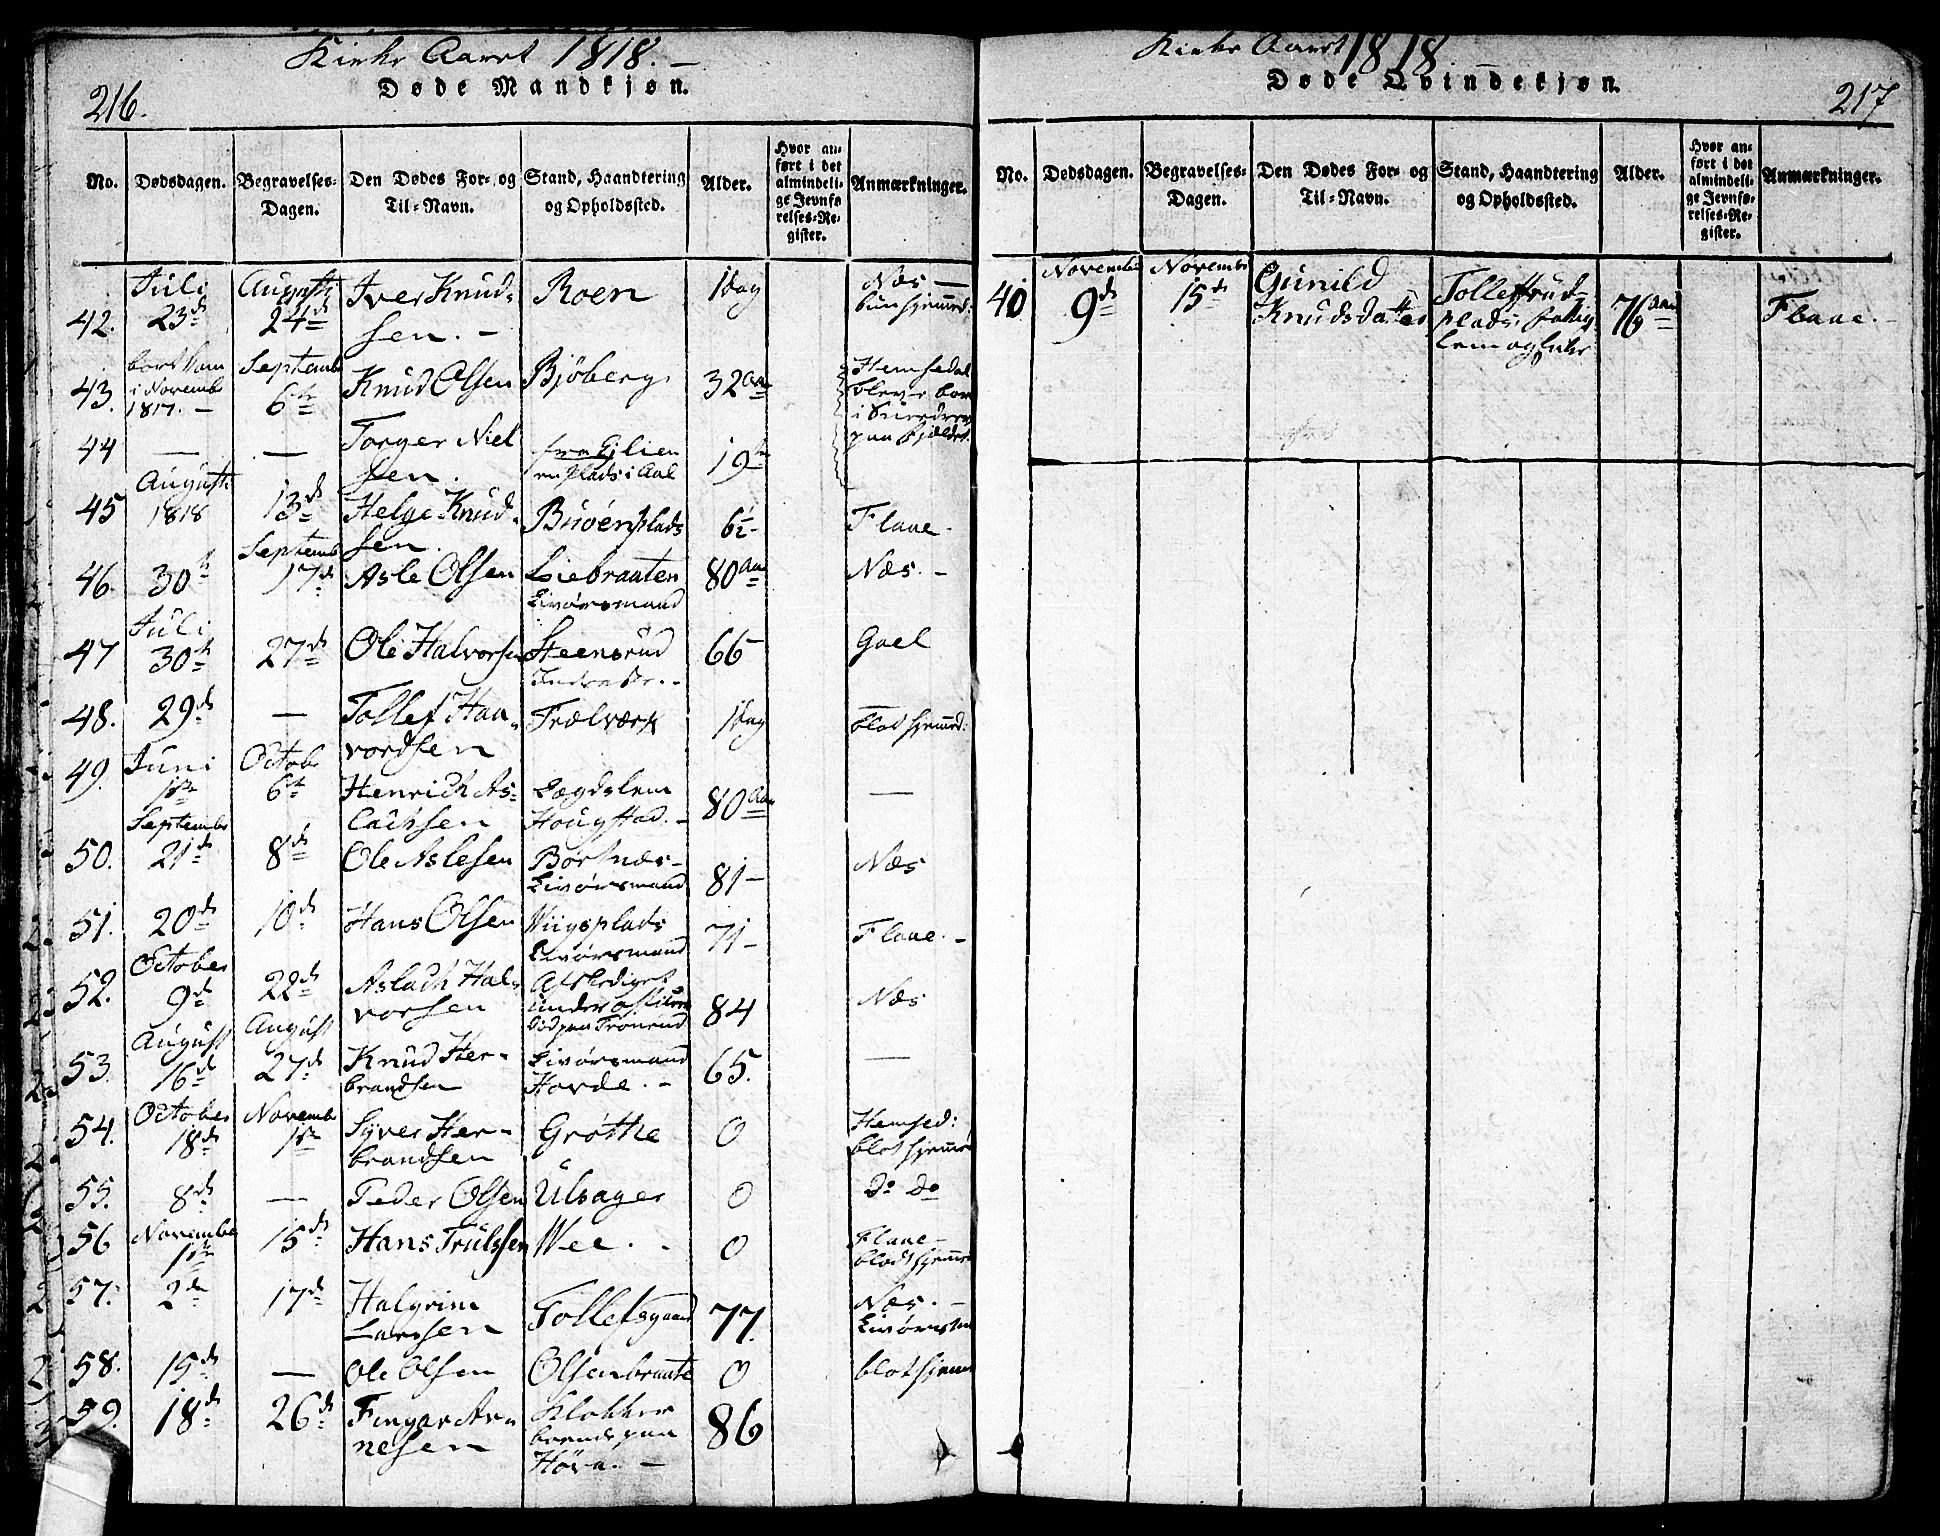 Kirke Aaret 1818. —
216.
Døde Mandkjøn.
No. Dødsdagen. Begravelses-Dagen. Den Dødes For- og Til-Navn. Stand, Haandtering og Opholdssted. Alder. Hvor anført i det almindelige Jevnførelses-Register. Anmærkninger.
42. Juli 23d August 24d Iver Knudsen. — Roen 1 dag Næs —
43. i Novemb 1817. — Septemb 6te Knud Olsen Bjøberg 32 Hemsedal
44 — — Torger Nielsen. Plads i Aal 19
45 August 1818 13d Helge Knudsen. Buøenplads 6½ Flaae.
46. 30t Septemb 17d Asle Olsen Liebraaten Livørsmand 80 Næs. —
47 Juli 30t 27d Ole Halvorsen Steensrud 66 — Goel
48. 29d — Tollef Haavordsen Trælværk 1 dag — blot hjemmed:
49. Juni 1ste Octobr 6te Henrich Aslachsen Lægdslem Hougstad. — 80 —
50. Septembr 21d 8d Ole Aslesen Børtnæs — Livørsmand 81 — Næs
51. 20d 10d Hans Olsen Wiigsplads Livørsmand 71 — Flaae. —
52. October 9d 22d Aslach Halvorsen Afskediget Tronrud 84 Næs
53. August 16d August 27d Knud Herbrandsen Livørsmand Hovde. — 65. —
54. October 18d Novembr 1ste Syver Herbrandsen Grøthe 0 Hemsed: blot hjemmed
55. 8d — Peder Olsen Ulsager 0 Do Do
56 November 1ste 15d Hans Trulssen Wee. 0 Flaae — blot hjemmed
57. 2den 17d Halgrim Larssen Tollefsgaard 77. Næs. —
58. 15d — Ole Olsen Olsenbraate 0 blot hjemm
59. 18d 26d Fingar Arnesen Klokker boende paa Hova. — 86
Kirke Aaret 1818
217
Døde Qvindekjøn.
No. Dødsdagen. Begravelses-Dagen. Den Dødes For- og Til-Navn. Stand, Haandtering og Opholdssted. Alder. Hvor anført i det almindelige Jevnførelses-Register. Anmærkninger.
40 Novembr 9d Novembr 15d Gunild Knudsdatter 76 Flaae. —